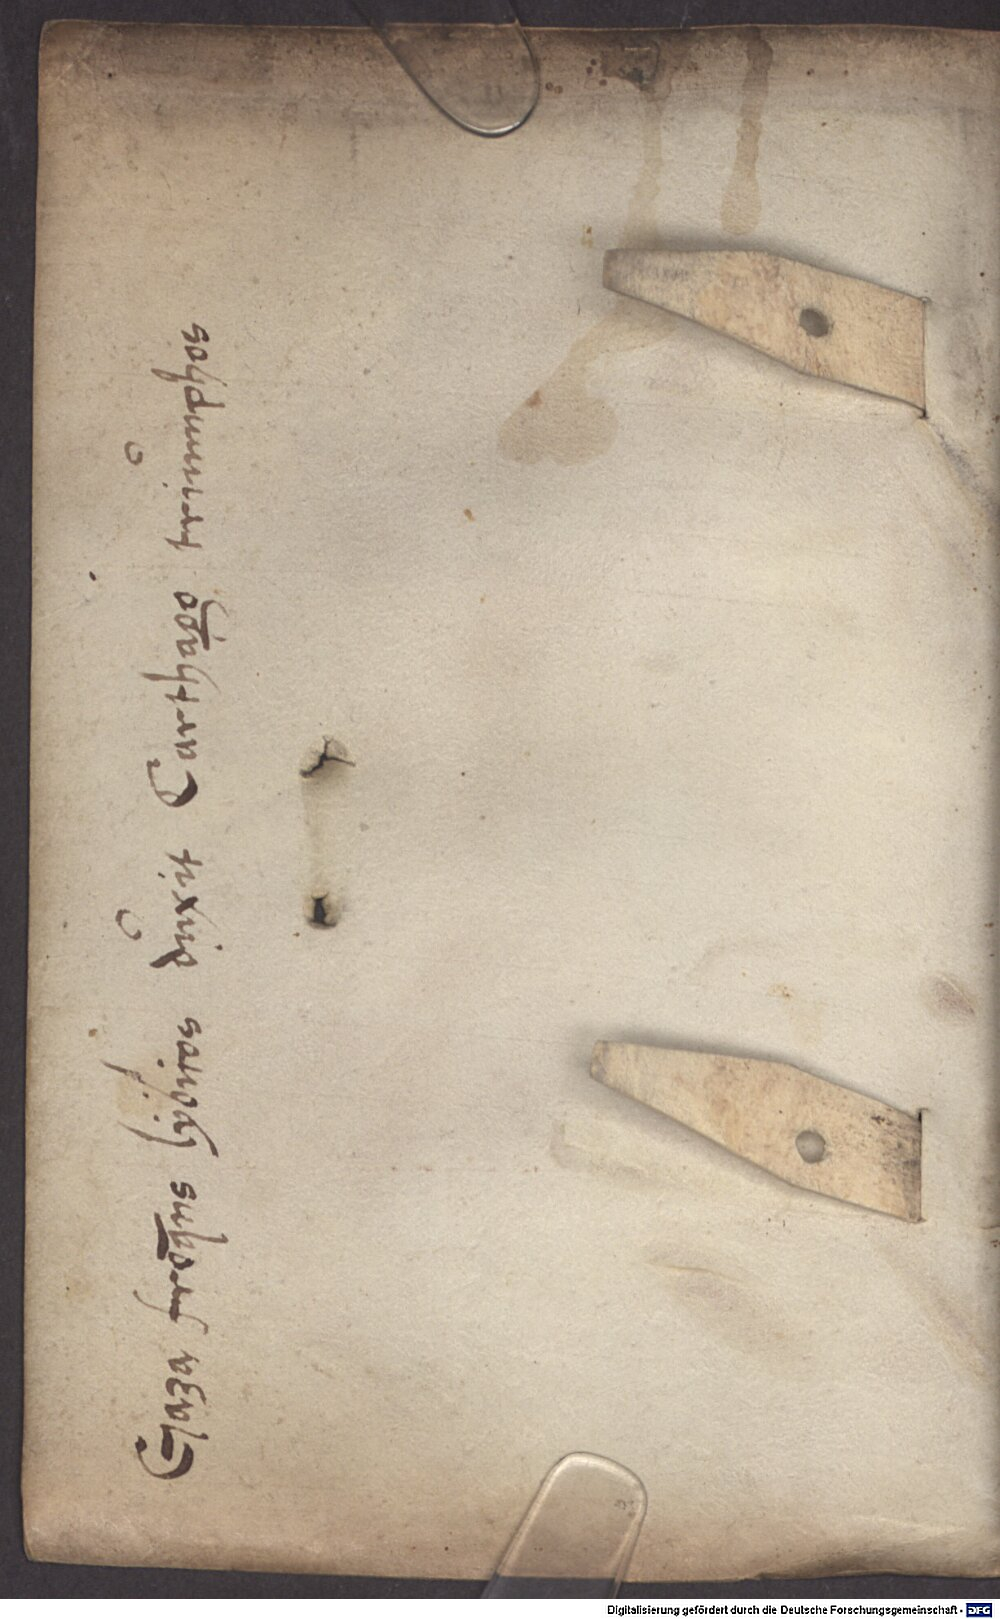 Gaza freqns lybicos duxit Carthago triumphos
Digitalisierung gefördert durch die Deutsche Forschungsgemeinschaft - DFG